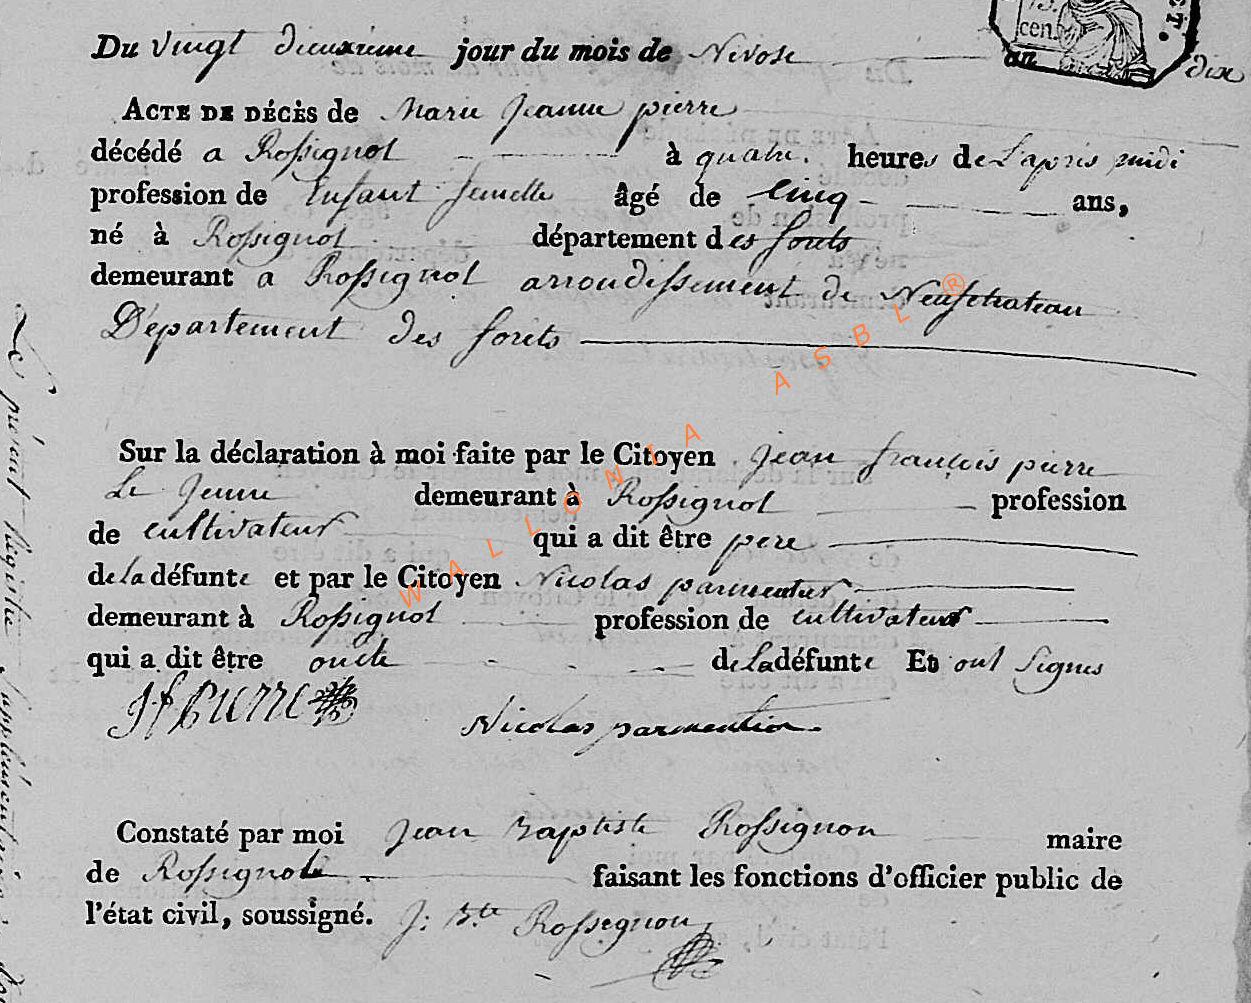 Du vingt dieuxieme jour du mois de Nivose an dix
ACTE DE DÉCÈS de Marie Jeanne pierre
décédé a Rossignol à quatre heures de L'apres midi
profession de Enfant femelle âgé de Cinq ans,
né à Rossignol département des forets
demeurant a Rossignol arrondissement de Neufchateau
Departement des forêts
Sur la déclaration à moi faite par le Citoyen Jean françois pierre
Le Jeune demeurant à Rossignol profession
de cultivateur qui a dit être pere
de la défunte et par le Citoyen Nicolas parmentier
demeurant à Rossignol profession de cultivateur
qui a dit être oncle de la défunte Et ont signés
Jf pierre Nicolas parmentier
Constaté par moi Jean Baptiste Rossignon maire
de Rossignol faisant les fonctions d'officier public de
l'état civil, soussigné. J: B.te Rossignon
WALLONIA ASBL ®
Le présent Registre supplementaire
75.
cen.
CT.